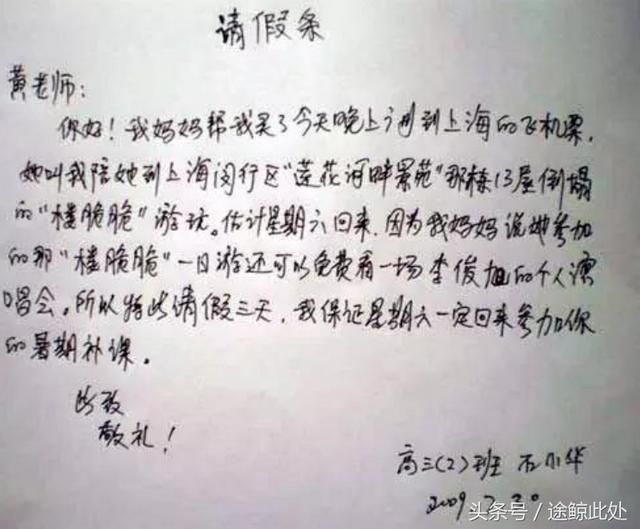 请假条
黄老师:
你好!我妈妈帮我买了今天晚上到上海的飞机票,
她叫我陪她到上海闵行区"莲花河畔景苑"那栋13层倒塌
的"楼脆脆"游玩。估计星期六回来,因为我妈妈说她参加
的那"楼脆脆"一日游还可以免费看一场李俊旭的个人演
唱会。所以特此请假三天,我保证星期六一定回来参加你
的暑期补课。
此致
敬礼!
高三(2)班 石小华
2009.7.20
头条号/途鲸此处